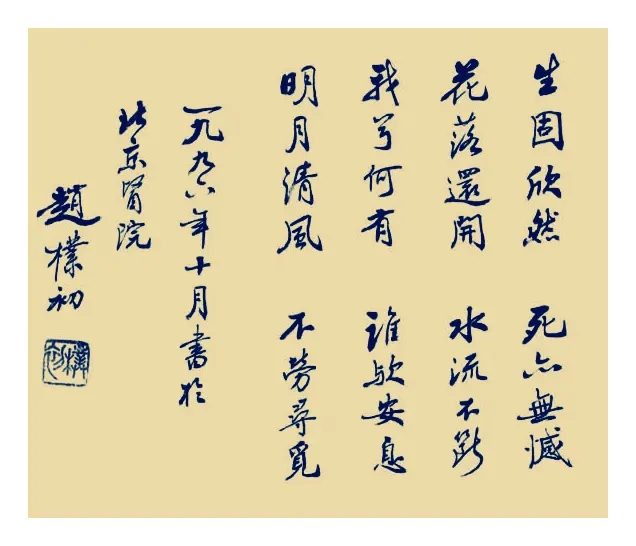 生固欣然 死亦無憾
花落還開 水流不斷
我兮何有 誰欤安息
明月清風 不勞尋覓
一九九六年十月書於
北京醫院
趙樸初
樸初